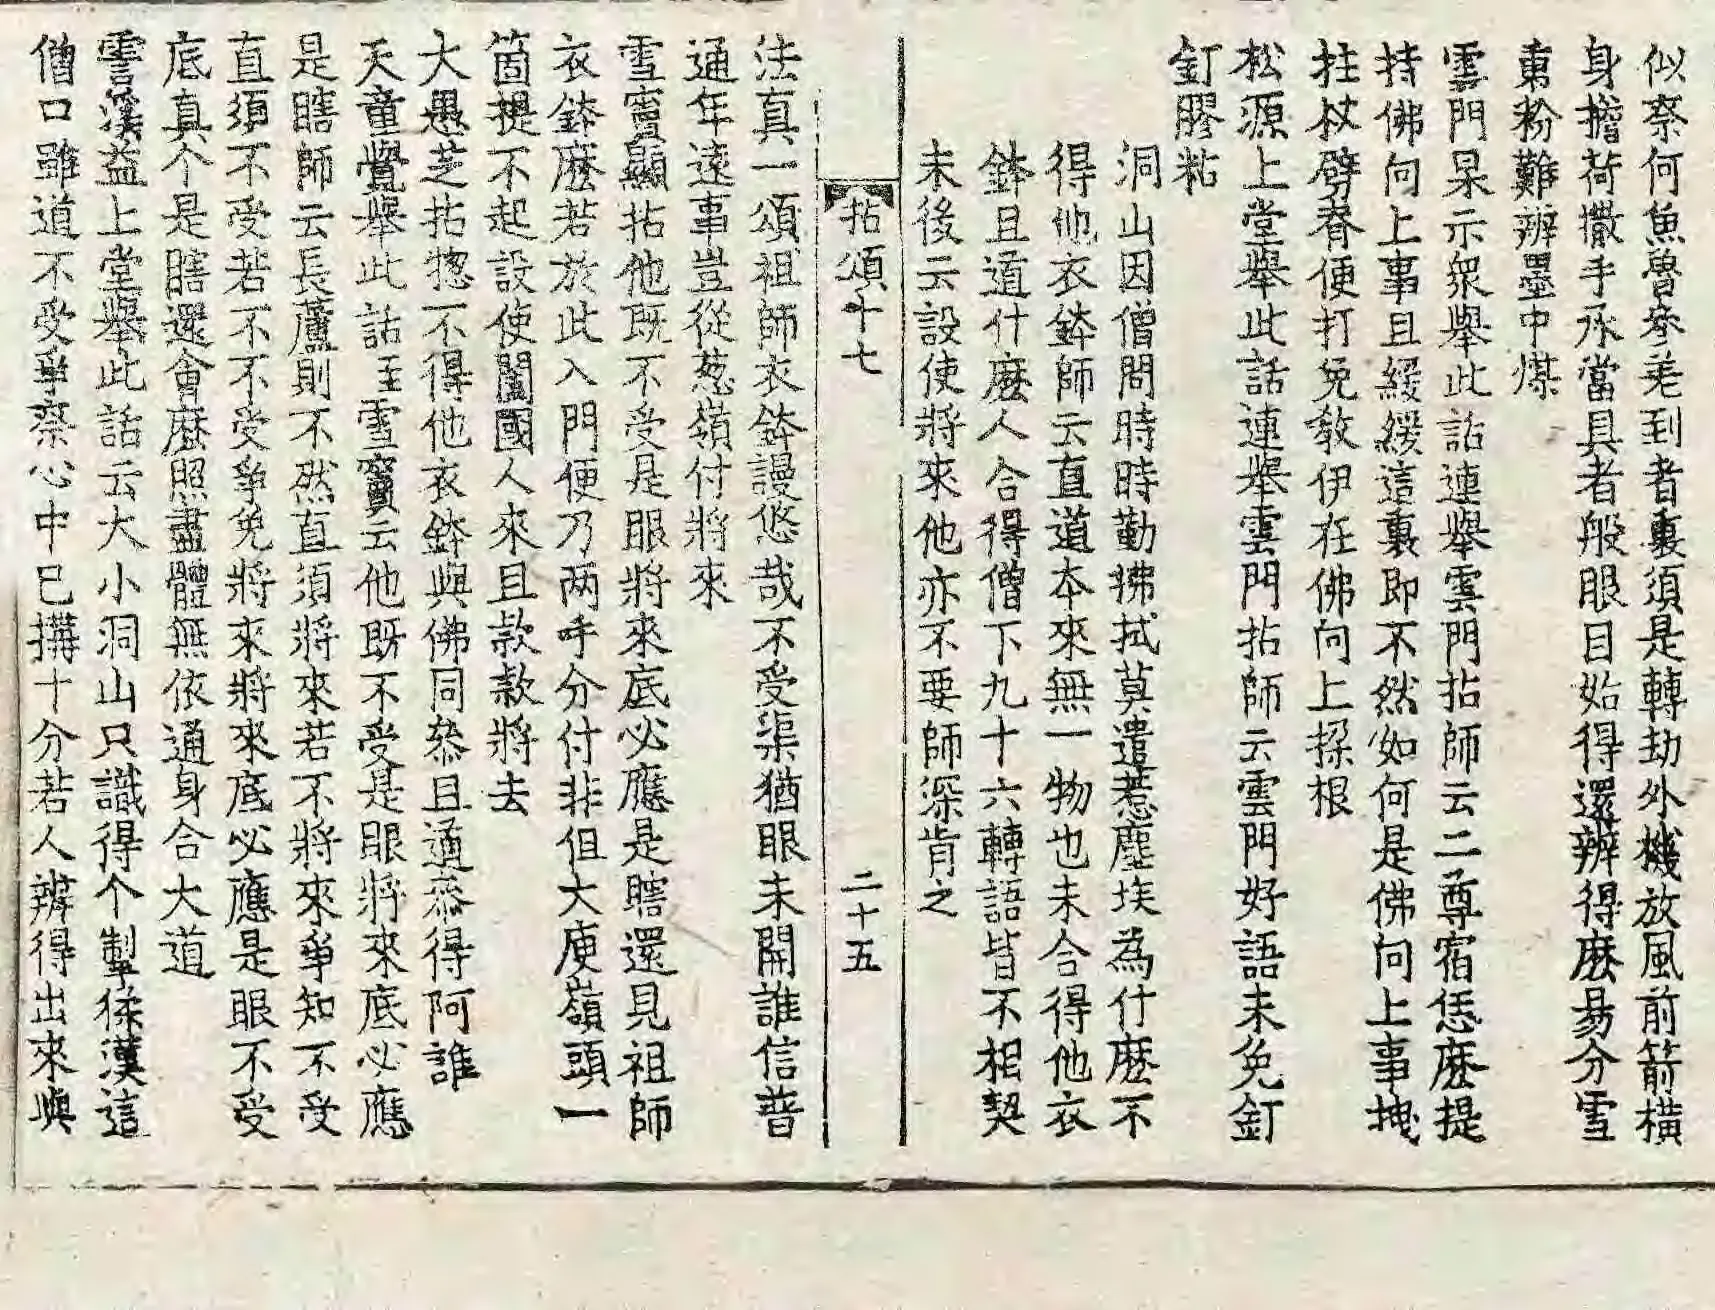 似奈何魚魯參差到者裏須是轉劫外機放風前箭橫
身擔荷撒手承當具者般眼目始得還辨得麽易分雪
裏粉難辨墨中煤
雲門杲示衆舉此話連舉雲門拈師云二尊宿恁麽提
持佛向上事且緩緩這裏即不然如何是佛向上事拽
拄杖劈脊便打免教伊在佛向上採根
松源上堂舉此話連舉雲門拈師云雲門好語未免釘
釘膠粘
洞山因僧問時時勤拂拭莫遣惹塵埃為什麽不
得他衣鉢師云直道本來無一物也未合得他衣
鉢且道什麽人合得僧下九十六轉語皆不相契
末後云設使將來他亦不要師深肯之
拈頌十七 二十五
法真一頌祖師衣鉢謾悠哉不受渠猶眼未開誰信普
通年遠事豈從葱嶺付將來
雪竇顯拈他既不受是眼將來底必應是瞎還見祖師
衣鉢麽若於此入門便乃两手分付非但大庾嶺頭一
箇提不起設使闔國人來且款款將去
大愚芝拈惣不得他衣鉢與佛同叅且道叅得阿誰
天童覺舉此話至雪竇云他既不受是眼將來底必應
是瞎師云長蘆則不然直須將來若不將來爭知不受
直須不受若不不受爭免將來將來底必應是眼不受
底真个是瞎還會麽照盡體無依通身合大道
雲溪益上堂舉此話云大小洞山只識得个掣徉漢這
僧口雖道不受爭奈心中已搆十分若人辨得出來與